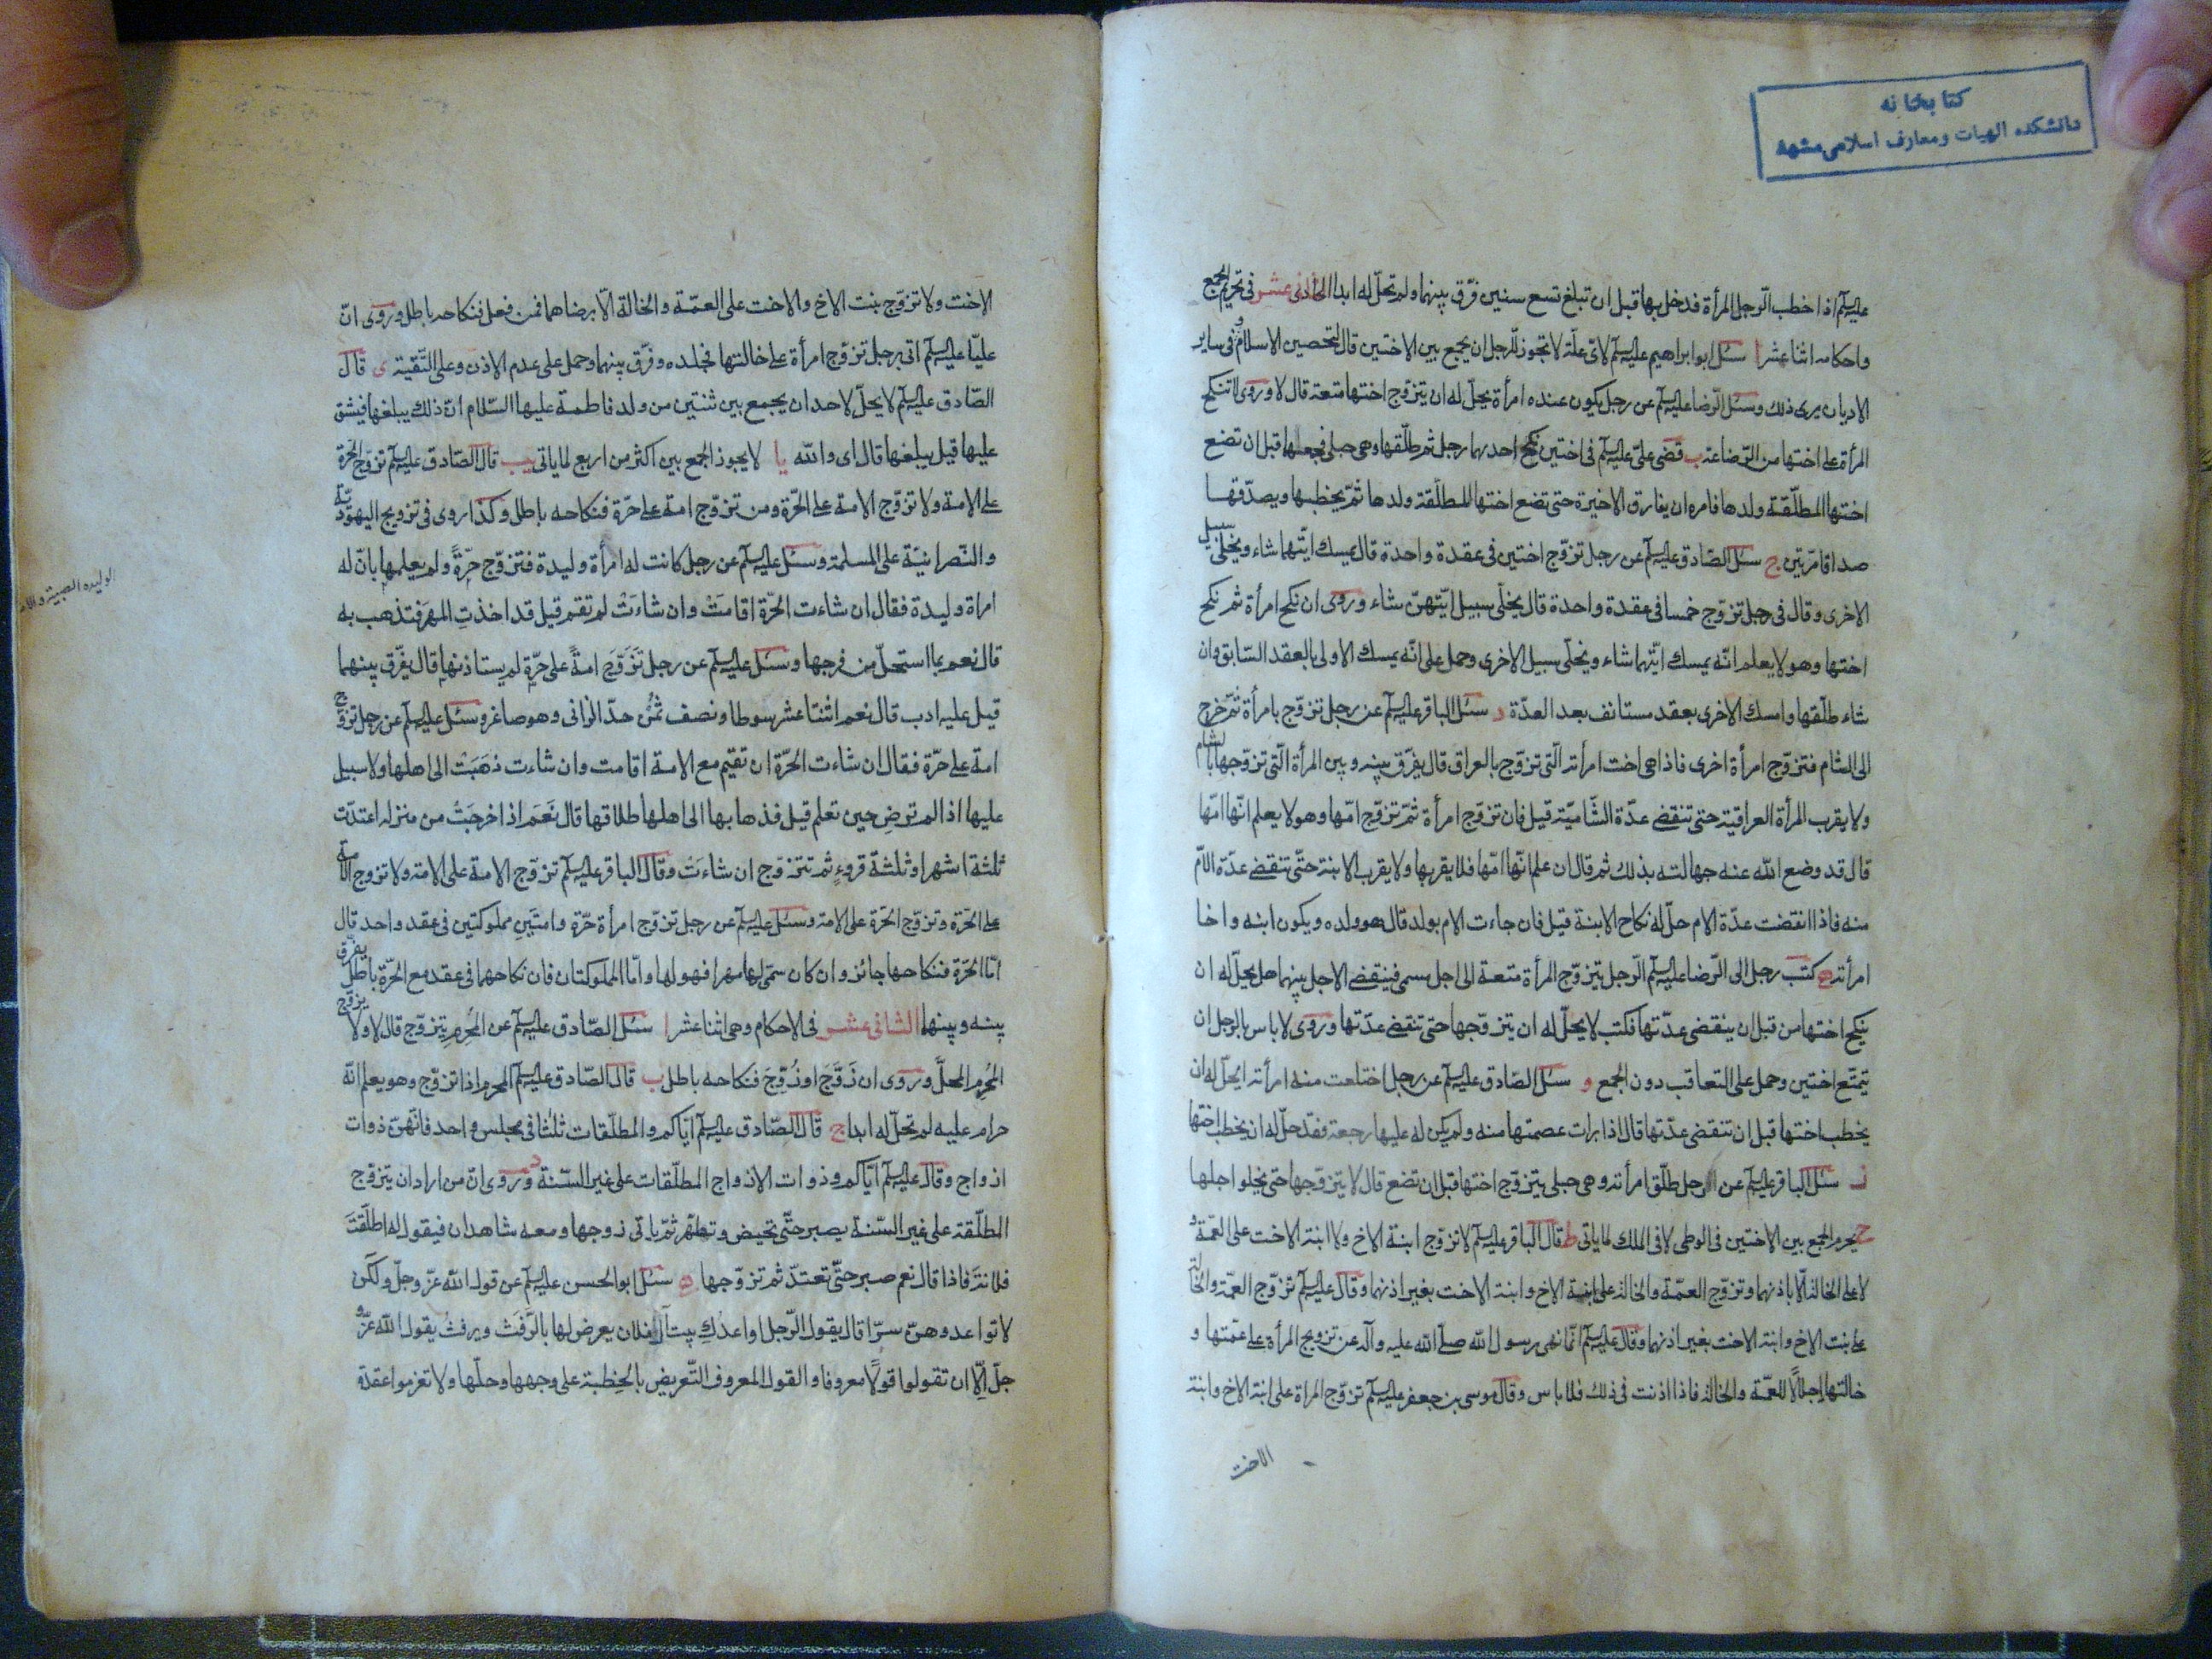 كتابخانه
دانشكده الهيات ومعارف اسلامى مشهد
عليه السلم اذا خطب الرّجل المرأة فدخل بها قبل ان تبلغ تسع سنين فرّق بينهما ولم تحلّ له ابدا الحادى عشر فى تحريم الجمع
واحكامه اثنا عشر ا سئل ابو ابراهيم عليه السلم لاىّ علّة لا تجوز للرّجل ان يجمع بين الاختين قال لتحصين الاسلام وفى ساير
الاديان يرى ذلك وسئل الرّضا عليه السلم عن رجل يكون عنده امرأة يحلّ له ان يتزوّج اختها متعة قال لا وروى لا تنكح
المرأة على اختها من الرّضاعة ب قضى علىّ عليه السلم فى اختين نكح احديهما رجل ثم طلّقها وهى حبلى فجعلها قبل ان تضع
اختها المطلّقة ولدها فامره ان يفارق الاخيرة حتى تضع اختها المطلّقة ولدها ثمّ يخطبها ويصدّقها
صداقا مرّتين ج سئل الصّادق عليه السلم عن رجل تزوّج اختين فى عقدة واحدة قال يمسك ايّتهما شاء ويخلّى سبيل
الاخرى وقال فى رجل تزوّج خمسا فى عقدة واحدة قال يخلّى سبيل ايّتهنّ شاء وروى ان نكح امرأة ثم نكح
اختها وهو لا يعلم انّه يمسك ايّتهما شاء ويخلّى سبيل الاخرى وحمل على انّه يمسك الاولى بالعقد السّابق وان
شاء طلّقها وامسك الاخرى بعقد مستانف بعد العدّة د سئل الباقر عليه السلم عن رجل تزوّج بامرأة ثمّ خرج
الى الشام فتزوّج امرأة اخرى فاذا هى اخت امرأته الّتى تزوّج بالعراق قال يفرّق بينه وبين المرأة الّتى تزوّجها بالشام
ولا يقرب المرأة العراقية حتى تنقضى عدّة الشّاميّة قيل فان تزوّج امرأة ثمّ تزوّج امّها وهو لا يعلم انّها امّها
قال قد وضع الله عنه جهالته بذلك ثم قال ان علم انّها امّها فلا يقربها ولا يقرب الابنة حتّى تنقضى عدّة الامّ
منه فاذا انقضت عدّة الام حلّ له نكاح الابنة قيل فان جاءت الام بولد قال هو ولده ويكون ابنه واخا
امرأته ه كتب رجل الى الرّضا عليه السلم الرّجل يتزوّج المرأة متعة الى اجل مسمى فينقضى الاجل بينهما هل يحلّ له ان
ينكح اختها من قبل ان ينقضى عدّتها فكتب لا يحلّ له ان يتزوّجها حتى تنقضى عدّتها وروى لا باس بالرجل ان
يتمتّع اختين وحمل على التعاقب دون الجمع و سئل الصّادق عليه السلم عن رجل اختلعت منه امرأته ايحلّ له ان
يخطب اختها قبل ان تنقضى عدّتها قال اذا برات عصمتها منه ولم يكن له عليها رجعة فقد حلّ له ان يخطب اختها
ز سئل الباقر عليه السلم عن الرجل طلّق امرأته وهى حبلى يتزوّج اختها قبل ان تضع قال لا يتزوّجها حتى يخلو اجلها
ح يحرم الجمع بين الاختين فى الوطى لا فى الملك لما ياتى ط قال الباقر عليه السلم لا تزوّج ابنة الاخ ولا ابنة الاخت على العمّة و
لا على الخالة الّا باذنهما وتزوّج العمّة والخالة على ابنة الاخ وابنة الاخت بغير اذنهما وقال عليه السلم تزوّج العمّة والخالة
على بنت الاخ وابنة الاخت بغير اذنهما وقال عليه السلم انّما نهى رسول الله صلى الله عليه وآله عن تزويج المرأة على عمّتها و
خالتها اجلالًا للعمّة والخالة فاذا اذنت فى ذلك فلا باس وقال موسى بن جعفر عليه السلم تزوّج المراة على ابنة الاخ وابنة
الاخت
الاخت ولا تزوّج بنت الاخ والاخت على العمّة والخالة الّا برضاهما فمن فعل فنكاحه باطل وروى انّ
عليّا عليه السلم اتى برجل تزوّج امرأة على خالتها فجلده وفرّق بينهما وحمل على عدم الاذن وعلى التّقية ى قال
الصّادق عليه السلم لا يحلّ لاحد ان يجمع بين ثنتين من ولد فاطمة عليها السّلام انّ ذلك يبلغها فيشق
عليها قيل يبلغها قال اى والله يا لا يجوز الجمع بين اكثر من اربع لما ياتى يب قال الصّادق عليه السلم تزوّج الحرّة
على الامة ولا تزوّج الامة على الحرّة ومن تزوّج امة على حرّة فنكاحه باطل وكذا روى فى تزويج اليهوديّة
والنّصرانيّة على المسلمة وسئل عليه السلم عن رجل كانت له امرأة وليدة فتزوّج حرّةً ولم يعلمها بانّ له
امراة وليدة فقال ان شاءت الحرّة اقامَتْ وان شاءَتْ لم تقم قيل قد اخذتِ المهرَ فتذهب به
قال نعم بما استحلّ من فرجها وسئل عليه السلم عن رجل تَزَوَّجَ امةً على حرّةٍ لم يستاذنها قال يفرّق بينهما
قيل عليه ادب قال نعم اثنتا عشر سوطا ونصف ثُمُن حدّ الزانى وهو صاغر وسئل عليه السلم عن رجل تزوّج
امة على حرّة فقال ان شاءت الحرّة ان تقيم مع الامة اقامت وان شاءت ذهَبَتْ الى اهلها ولا سبيل
عليها اذا لم ترضِ حين تعلم قيل فذهابها الى اهلها طلاقها قال نَعَم اذا خرجَتْ من منزله اعتدّت
ثلثة اشهر او ثلثة قروءٍ ثم تتزوّج ان شاءَتْ وقال الباقر عليه السلم تزوّج الامة على الامة ولا تزوج الامة
على الحرّة وتزوّج الحرّة على الامة وسئل عليه السلم عن رجل تزوّج امرأة حرّة وامتَينِ مملوكتين فى عقد واحد قال
امّا الحرّة فنكاحها جائز وان كان سمّى لها مهرا فهو لها وامّا المملوكتان فان نكاحهما فى عقد مع الحرّة باطل يفرّق
بينه وبينهما الثانى عشر فى الاحكام وهى اثنا عشر ا سئل الصّادق عليه السلم عن المُحْرِمِ يتزوّج قال لا ولا يزوّج
المُحرِم المحلَّ وروى ان زَوَّجَ او زُوِّجَ فنكاحه باطل ب قال الصّادق عليه السلم المحرم اذا تزوّج وهو يعلم انّه
حرام عليه لم تحلّ له ابدا ج قال الصّادق عليه السلم ايّاكم والمطلّقات ثلثا فى مجلس واحد فانّهنّ ذوات
ازواج وقال عليه السلم ايّاكم وذوات الازواج المطلّقات على غير السّنة د وروى انّ من اراد ان يتزوّج
المطلّقة على غير السّنة يصبر حتّى تحيض وتطهر ثمّ ياتى زوجها ومعه شاهدان فيقول له اطلّقتَ
فلانة فاذا قال نعم صبر حتّى تعتدّ ثم تزوّجها ه سئل ابو الحسن عليه السلم عن قول الله عزّ وجلّ ولكن
لا تواعدوهنّ سرّا قال يقول الرّجل اواعدُكِ بيتَ آل فلان يعرض لها بالرَّفَثِ ويرفثُ يقول الله عزّ و
جلّ اِلّا ان تقولوا قولًا معروفا والقول المعروف التّعريض بالخِطبة على وجهها وحلّها ولا تعزموا عقدة
الوليدة الصبية والامة